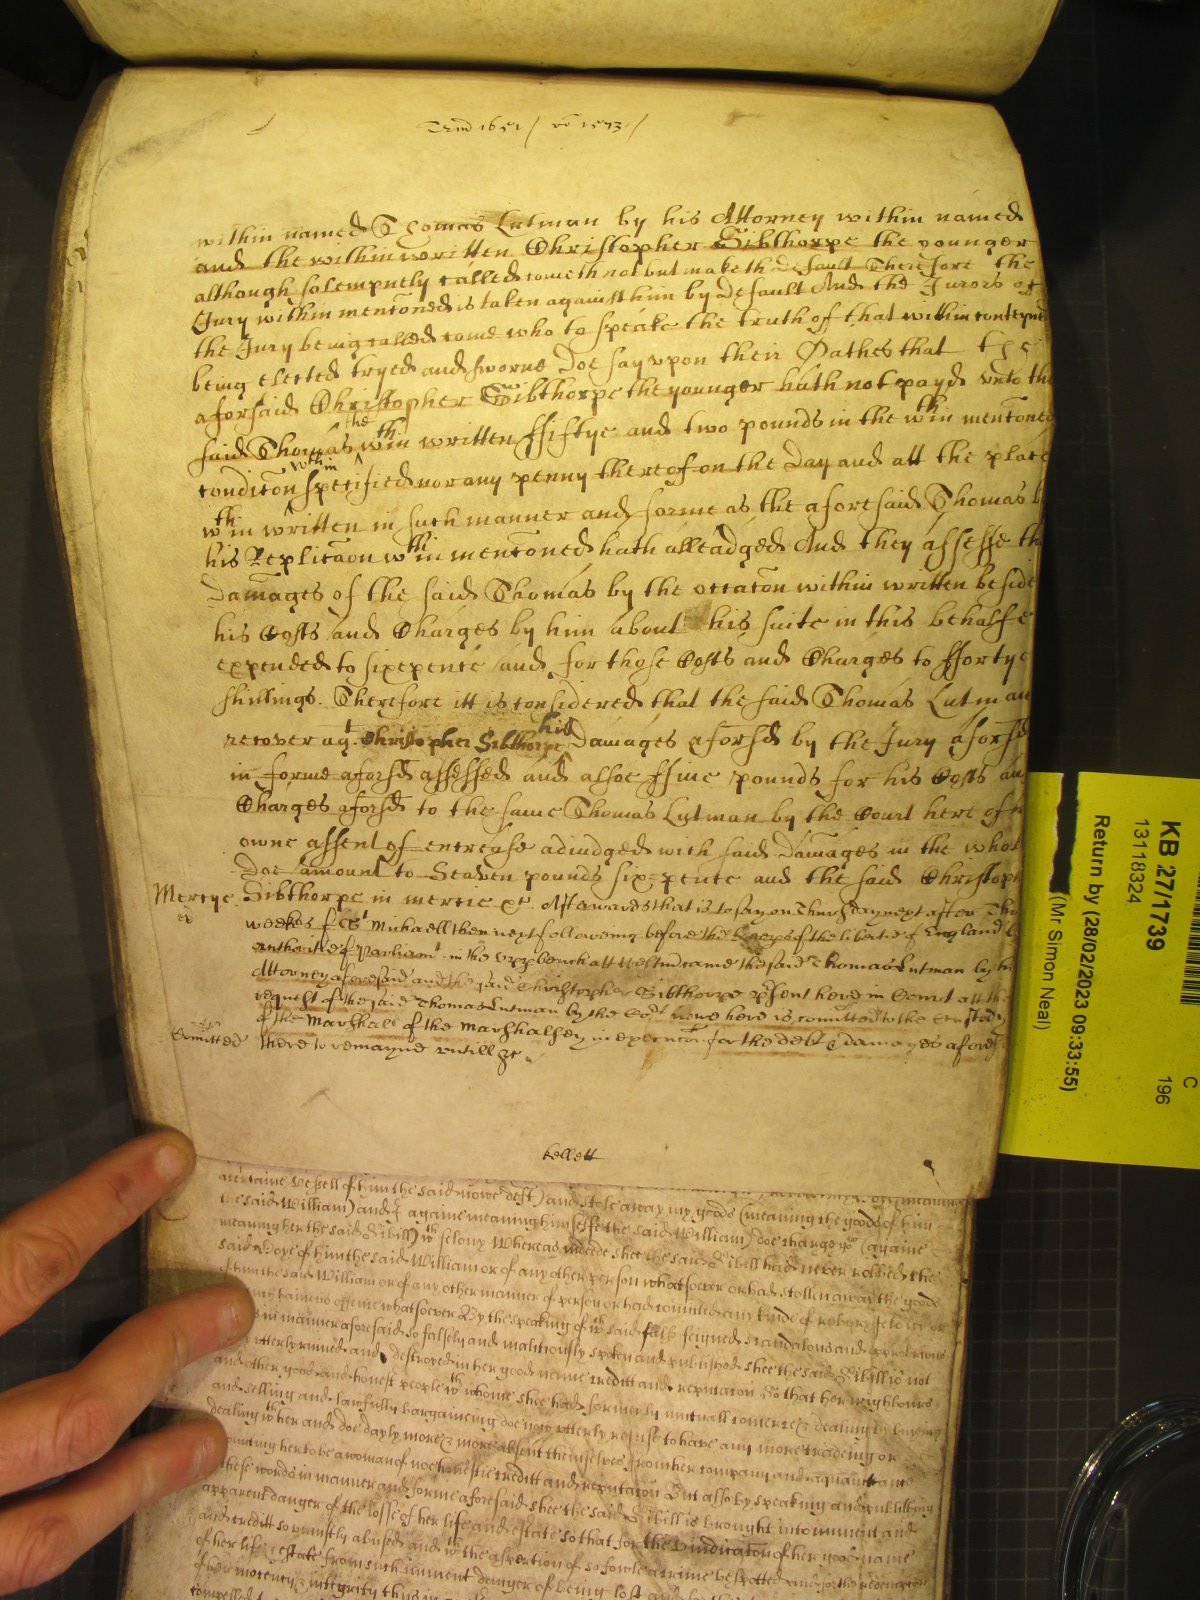 Trin 1651 / ro 1573 /
within named Thomas Lutman by his Attorney within named
and the within written Christopher Sibthorpe the younger
although solempnely called cometh not but maketh default Therefore the
Jury within mentoned is taken against him by default And the Jurors of
the Jury being called come who to speake the truth of that within conteyned
being elected tryed and sworne doe say upon their Oathes that the
aforsaid Christopher Sibthorpe the younger hath not payd unto the
said Thomas the wthin written ffiftye and two pounds in the wthin mentoned
conditon within specified nor any penny thereof on the day and att the place
wthin written in such manner and forme as the aforesaid Thomas by
his Replicaon wthin mentoned hath alleadged And they assesse the
damages of the said Thomas by the occaton within written beside
his Costs and Charges by him about his suite in this behalfe
expended to sixpence and for those Costs and Charges to ffortye
shillings. Therefore itt is considered that the said Thomas Lutman
recover agt Christopher Sibthorpe his damages aforsd by the Jury aforsd
in forme aforsd assessed and alsoe ffive pounds for his Costs and
Charges aforsd to the same Thomas Lutman by the Court here of
owne assent of encrease adiudged wich said damages in the whole
doe amount to Seaven pounds six=pence and the said Christopher
Mercye Sibthorpe in mercie &c. Aftawards that is to say on Thursday next after
weekes of St Michaell then next followeing before the keeps of the libertie of England
authoritie of Parliamt in the upp bench att Westm came the said Thomas Lutman by
Attorney aforesaid and the said Christopher Sibthorpe psent here in Court att the
request of the said Thomas Lutman by the Cort nowe here is comitted to the Custody
of the Marshall of the Marshalsey in execucon for the debt & damages aforesd
Comitted there to remayne untill &c
kellett
certaine vessell of him the said Lowe dest) and stole away my goods (meaning the goods of him
the said William) and I againe meaning himselfe the said William) doe charge you (againe
meaning her the said Sibill) wth felony Whereas indeede shee the said Sibill had never robbed the
of him the said William or of any other person whatsoever or had stollen away the goods
of him the said William or of any other manner of person or had comitted any kinde of robery felony or
in manner aforesaid so falsely and malitiously spoken and published shee the said Sibill is not
utterly ruined and destroyed in her good name creditt and reputacon So that her neighbours
and other good and honest people wth whome shee had formerly mutuall comerce & dealing by buying
and selling and lawfully bargaineing doe now utterly refuse to have any more tradeing or
dealing wth her and doe dayly more & more absent themselves from her company and aquaintance
accounting her to be a woman of noe honestie creditt and reputacon But also by speaking and publishing
these words in manner and forme aforesaid shee the said Sibill is brought into iminent and
apparent danger of the losse of her life and estate so that for the vindicaton of her good name
and creditt so uniustly abused and wth the aspertion of so fowle a crime bespotted and for the redemption
of her life & estate from such iminent danger of being lost and